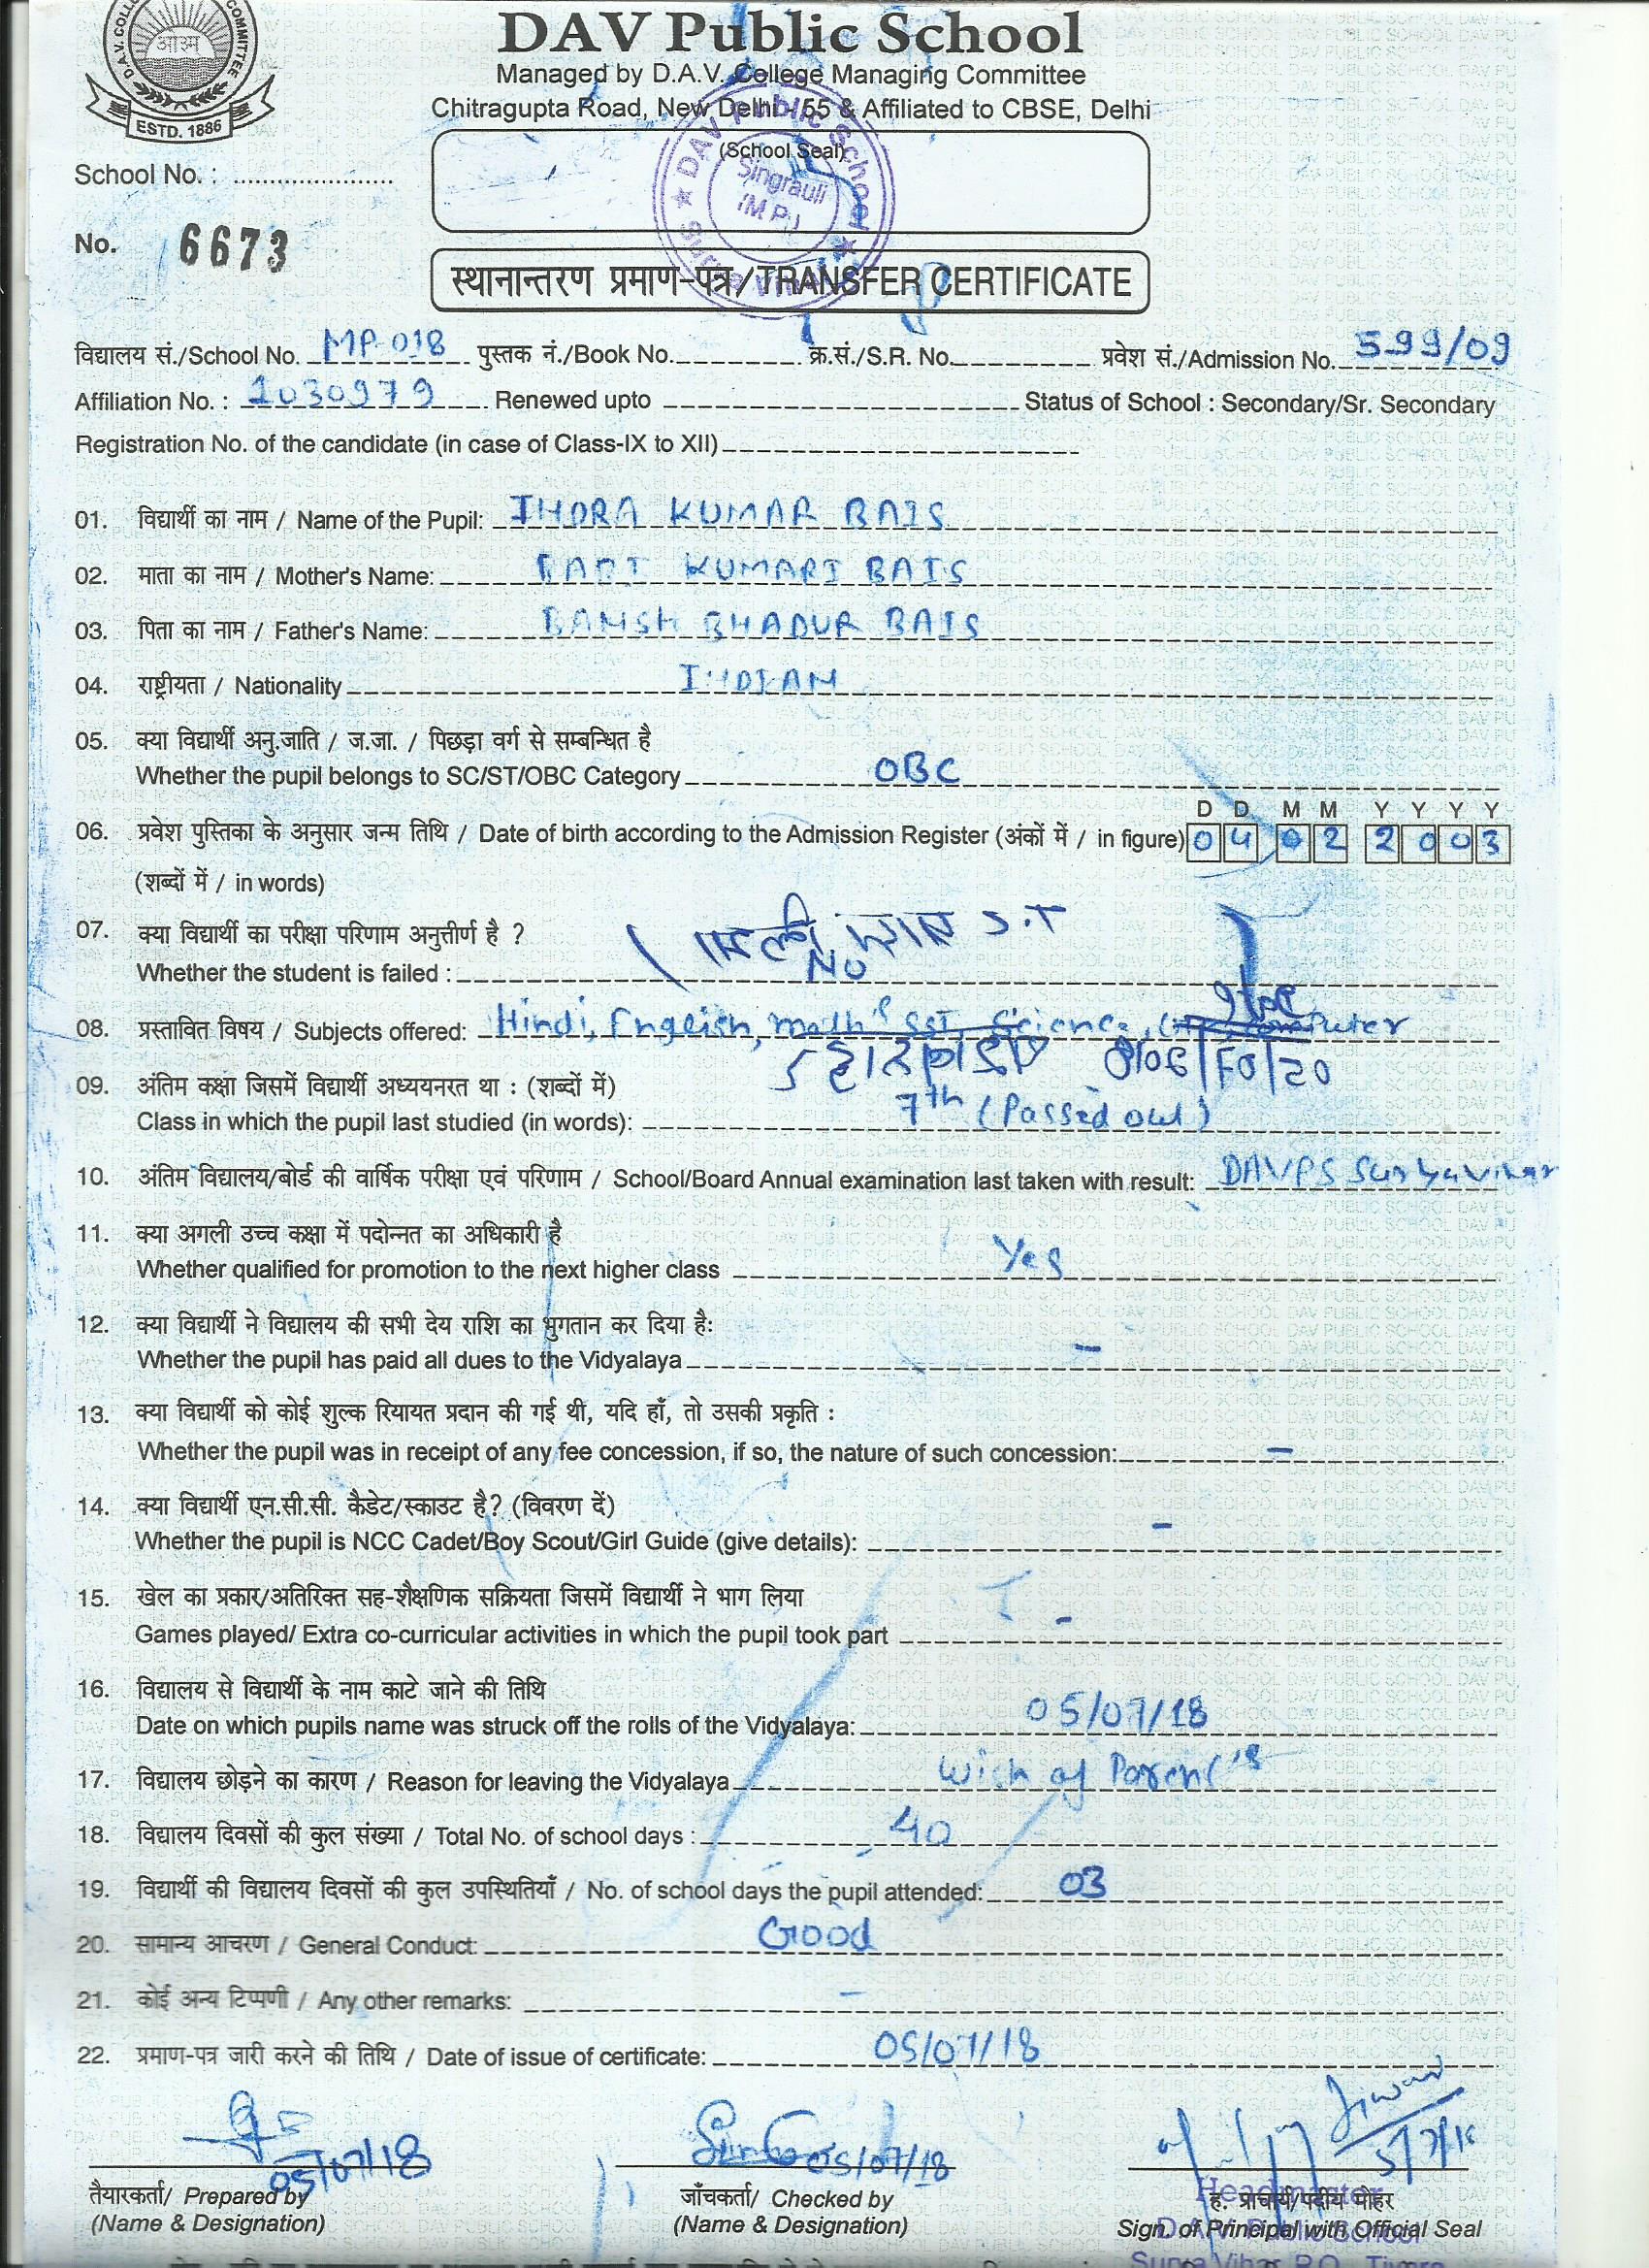 D.A.V. COLL
COMMITTEE
ESTD. 1886
DAV Public School
Managed by D.A.V. College Managing Committee
Chitragupta Road, New Delhi - 55 & Affiliated to CBSE, Delhi
(School Seal)
DAV Public School
Singrauli
(M.P.)
School No. :
No. 6673
स्थानान्तरण प्रमाण-पत्र/TRANSFER CERTIFICATE
विद्यालय सं./School No. MP-018 पुस्तक नं./Book No. क्र.सं./S.R. No. प्रवेश सं./Admission No. 599/09
Affiliation No. : 1030979 Renewed upto Status of School : Secondary/Sr. Secondary
Registration No. of the candidate (in case of Class-IX to XII)
01. विद्यार्थी का नाम / Name of the Pupil: INDRA KUMAR BAIS
02. माता का नाम / Mother's Name: KUMARI BAIS
03. पिता का नाम / Father's Name: BANSH BHADUR BAIS
04. राष्ट्रीयता / Nationality INDIAN
05. क्या विद्यार्थी अनु.जाति / ज.जा. / पिछड़ा वर्ग से सम्बन्धित है
Whether the pupil belongs to SC/ST/OBC Category OBC
D D M M Y Y Y Y
06. प्रवेश पुस्तिका के अनुसार जन्म तिथि / Date of birth according to the Admission Register (अंकों में / in figure) 04 02 2003
(शब्दों में / in words)
07. क्या विद्यार्थी का परीक्षा परिणाम अनुत्तीर्ण है ?
Whether the student is failed : NO
08. प्रस्तावित विषय / Subjects offered: Hindi, English, math's SST, Science, Computer
09. अंतिम कक्षा जिसमें विद्यार्थी अध्ययनरत था : (शब्दों में)
Class in which the pupil last studied (in words): 7th (Passed out)
10. अंतिम विद्यालय/बोर्ड की वार्षिक परीक्षा एवं परिणाम / School/Board Annual examination last taken with result: DAVPS Suryavihar
11. क्या अगली उच्च कक्षा में पदोन्नत का अधिकारी है
Whether qualified for promotion to the next higher class Yes
12. क्या विद्यार्थी ने विद्यालय की सभी देय राशि का भुगतान कर दिया है:
Whether the pupil has paid all dues to the Vidyalaya -
13. क्या विद्यार्थी को कोई शुल्क रियायत प्रदान की गई थी, यदि हाँ, तो उसकी प्रकृति :
Whether the pupil was in receipt of any fee concession, if so, the nature of such concession: -
14. क्या विद्यार्थी एन.सी.सी. कैडेट/स्काउट है? (विवरण दें)
Whether the pupil is NCC Cadet/Boy Scout/Girl Guide (give details): -
15. खेल का प्रकार/अतिरिक्त सह-शैक्षणिक सक्रियता जिसमें विद्यार्थी ने भाग लिया
Games played/ Extra co-curricular activities in which the pupil took part -
16. विद्यालय से विद्यार्थी के नाम काटे जाने की तिथि
Date on which pupils name was struck off the rolls of the Vidyalaya: 05/07/18
17. विद्यालय छोड़ने का कारण / Reason for leaving the Vidyalaya Wish of Parent's
18. विद्यालय दिवसों की कुल संख्या / Total No. of school days : 40
19. विद्यार्थी की विद्यालय दिवसों की कुल उपस्थितियाँ / No. of school days the pupil attended: 03
20. सामान्य आचरण / General Conduct: Good
21. कोई अन्य टिप्पणी / Any other remarks: -
22. प्रमाण-पत्र जारी करने की तिथि / Date of issue of certificate: 05/07/18
05/07/18 05/07/18 5/7/18
तैयारकर्ता/ Prepared by जाँचकर्ता/ Checked by ह. प्राचार्य/पदीय मोहर
(Name & Designation) (Name & Designation) Sign. of Principal with Official Seal
Headmaster
D.A.V. Public School
Surya Vihar P.O.